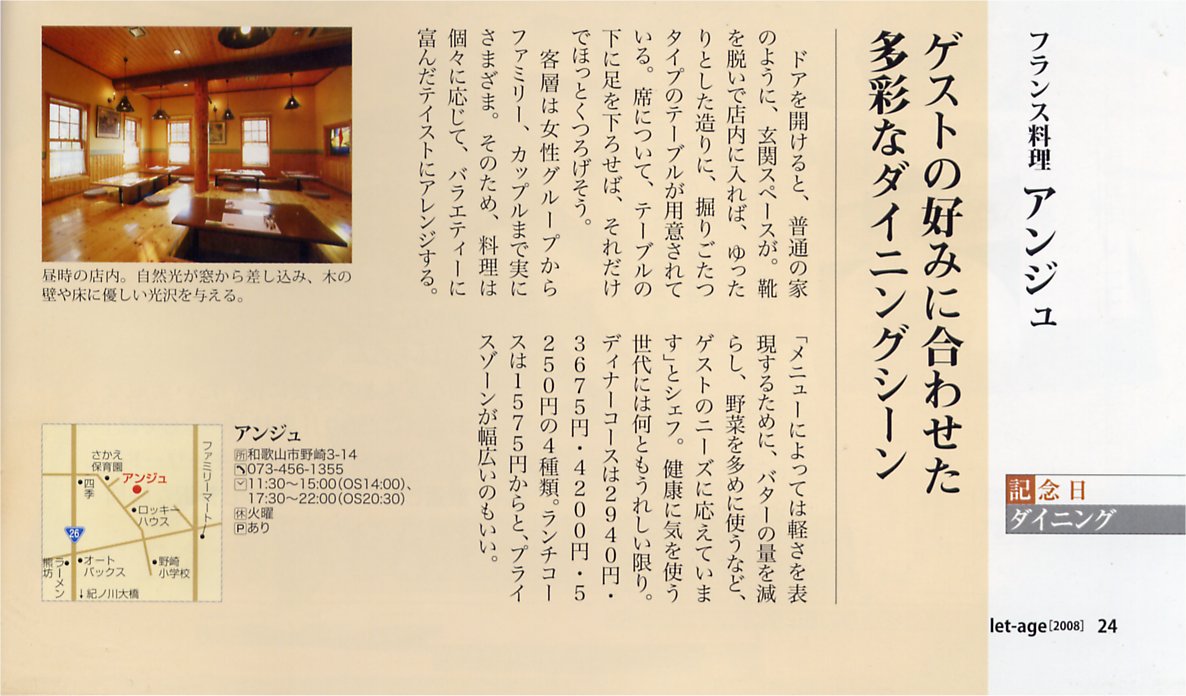 フランス料理 アンジュ
記念日
ダイニング
let-age[2008] 24
ゲストの好みに合わせた
多彩なダイニングシーン
ドアを開けると、普通の家
のように、玄関スペースが。靴
を脱いで店内に入れば、ゆった
りとした造りに、掘りごたつ
タイプのテーブルが用意されて
いる。席について、テーブルの
下に足を下ろせば、それだけ
でほっとくつろげそう。
客層は女性グループから
ファミリー、カップルまで実に
さまざま。そのため、料理は
個々に応じて、バラエティーに
富んだテイストにアレンジする。
「メニューによっては軽さを表
現するために、バターの量を減
らし、野菜を多めに使うなど、
ゲストのニーズに応えていま
す」とシェフ。健康に気を使う
世代には何ともうれしい限り。
ディナーコースは2940円・
3675円・4200円・5
250円の4種類。ランチコー
スは1575円からと、プライ
スゾーンが幅広いのもいい。
昼時の店内。自然光が窓から差し込み、木の
壁や床に優しい光沢を与える。
アンジュ
所和歌山市野崎3-14
073-456-1355
11:30〜15:00(OS14:00)、
17:30〜22:00(OS20:30)
休火曜
Pあり
ファミリーマート
さかえ
保育園
アンジュ
四季
ロッキー
ハウス
26
オート
バックス
野崎
小学校
ラーメン
熊坊
↓紀ノ川大橋